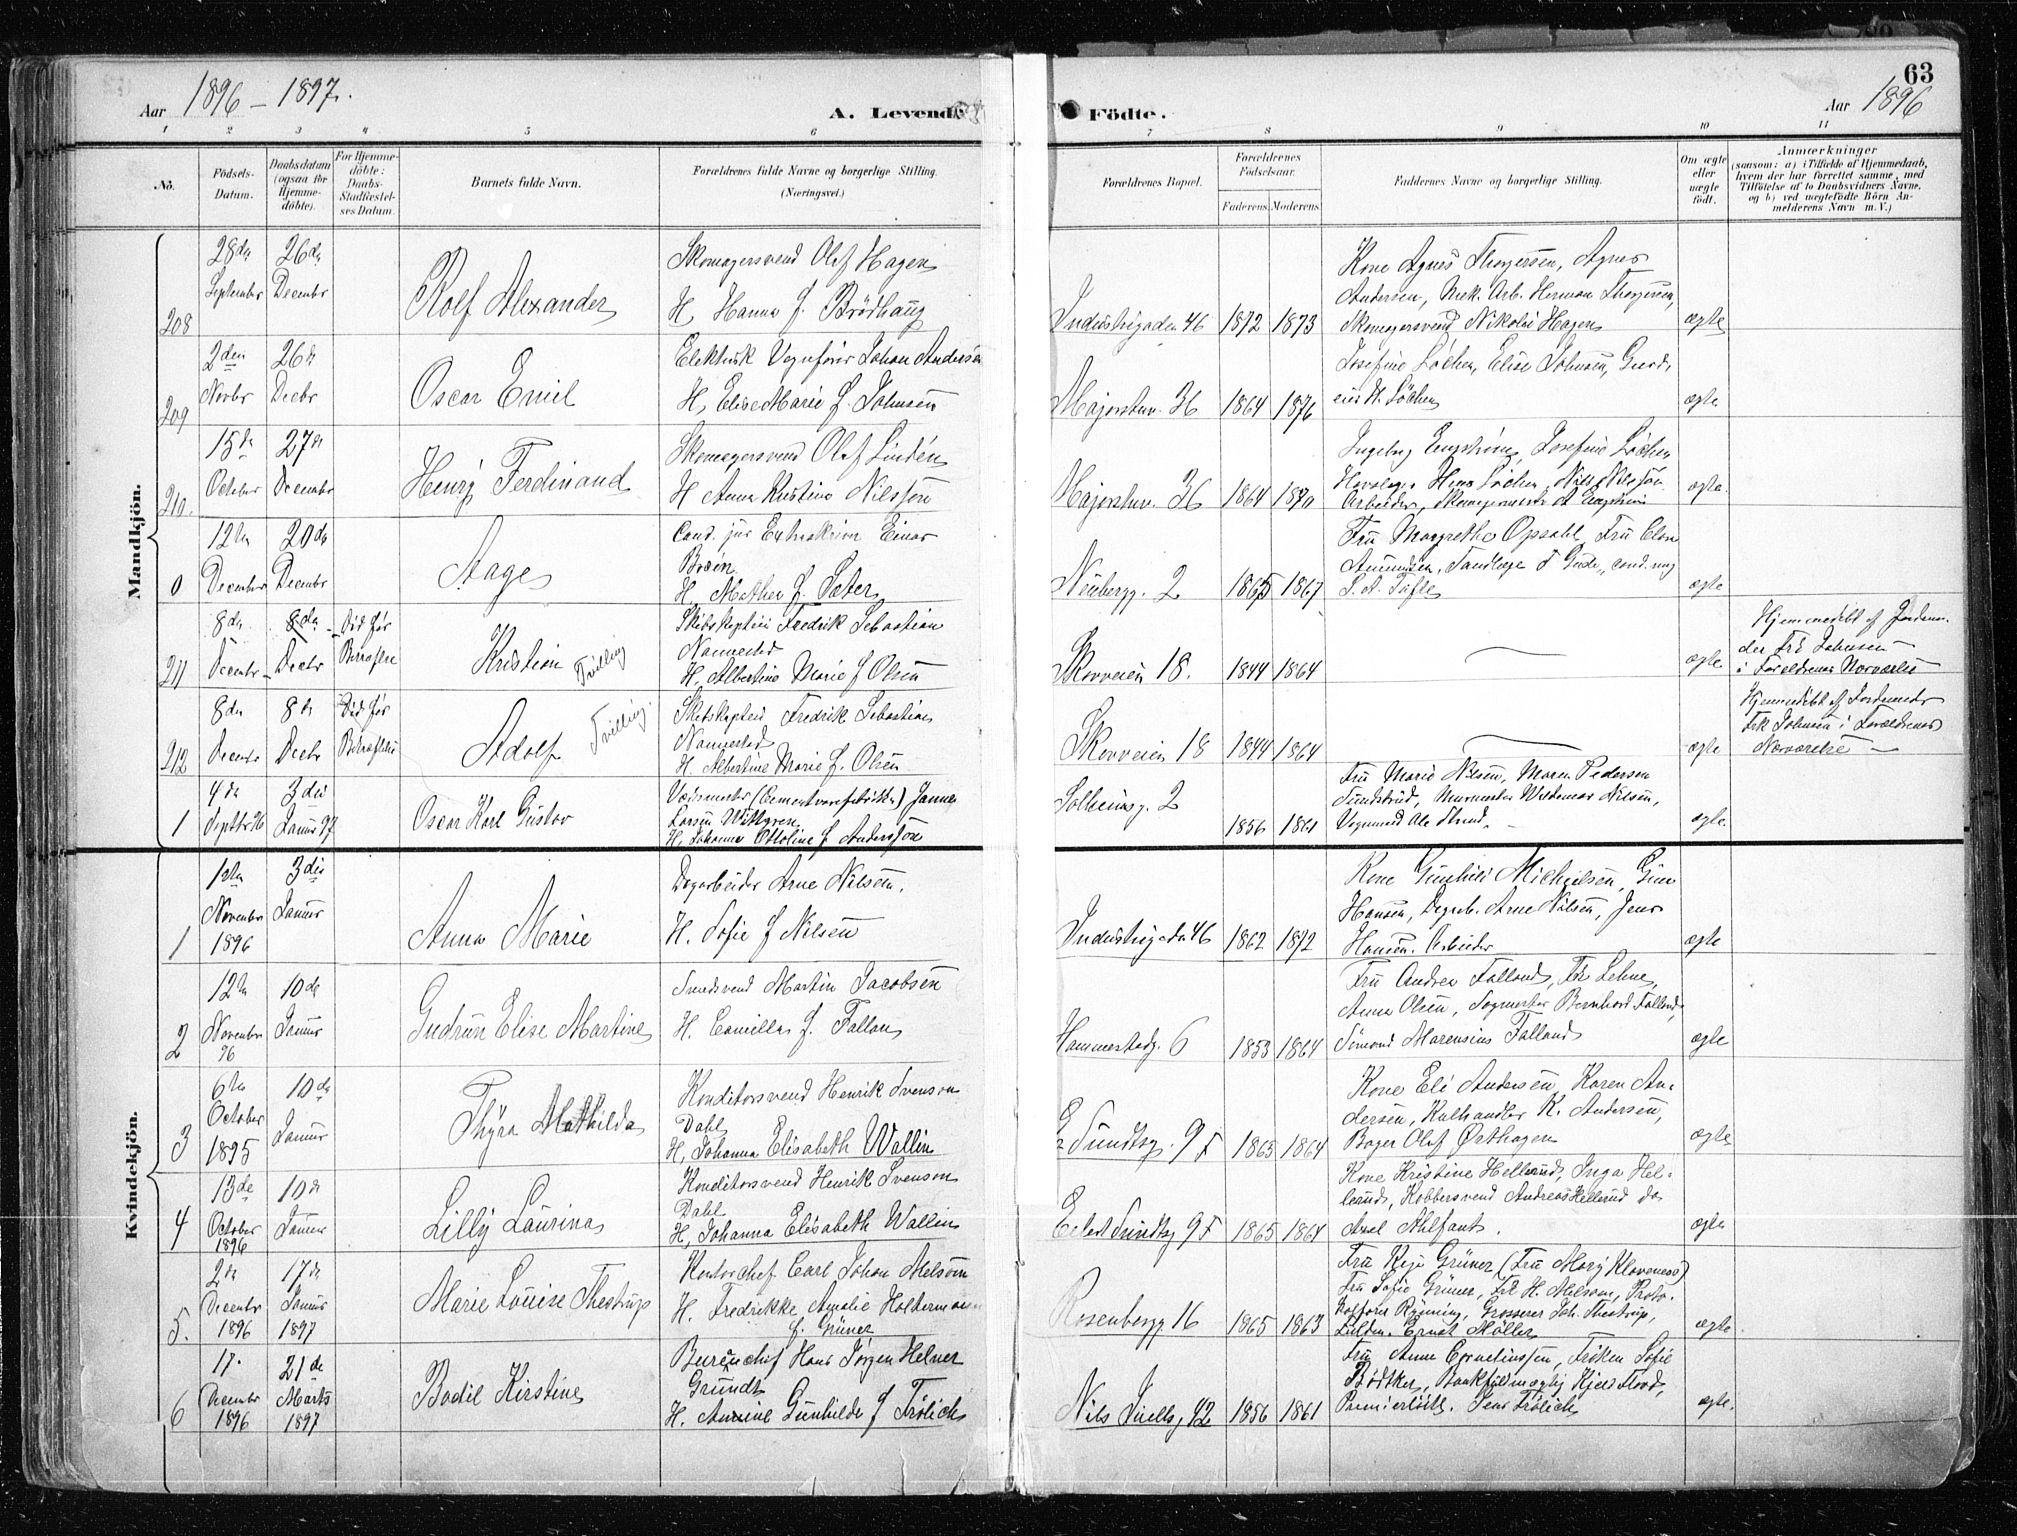 63
Aar 1896 – 1897.
A. Levende
Födte.
Aar 1896
1 2 3 4 5 6 7 8 9 10 11
No.
Födsels-
Datum.
Daabsdatum
(ogsaa for
Hjemme-
döbte).
For Hjemme-
döbte:
Daabs-
Stadfæstel-
ses Datum.
Barnets fulde Navn.
Forældrenes fulde Navne og borgerlige Stilling.
(Næringsvei.)
Forældrenes Bopæl.
Forældrenes
Födselsaar.
Faderens. Moderens.
Faddernes Navne og borgerlige Stilling.
Om ægte
eller
uægte
født.
Anmærkninger
(saasom: a) i Tilfælde af Hjemmedaab,
hvem der har forrettet samme, med
Tilföielse af to Daabsvidners Navne,
og b) ved uægtefödte Börn An-
melderens Navn m. V.)
Mandkjön.
208
28de September
26de Decembr
Rolf Alexander
Skomagersvend Olaf Hagen
H. Hanna f. Brödhaug
Industrigaden 46
1872 1873
Kone Agnes Thorgersen, Agnes
Andersen, Mek. Arb. Herman Thorgersen,
Skomagersvend Nikolai Hagen
ægte
209
2den Novbr
26de Decbr
Oscar Emil
Elektrisk Vognfører Johan Andersen
H. Elise Marie f. Johnsen
Majorstuv. 36
1864 1876
Josefine Löchen, Elise Johnsen, Gaard-
eier H. Löchen
ægte
210.
15de October
27de December
Henry Ferdinand
Skomagersvend Olaf Lindén
H Anna Kristine Nilsson
Majorstuv. 36
1864 1870
Ingeborg Engström, Josefine Löchen
Hans Löchen, Nils Nilsson
Arbeider, Skomagermester A Engström
ægte
0
12te December
20de Decembr
Aage
Cand. jur Einar
H, Mathea f. Sæter
Neubergg. 2
1865 1867
Fru Margrethe Opsahl, Fru Elen
Amundsen, Tandlæge T Gude, cand. mag
ægte
211
8de Decembr
8de Decbr
Död før Bekræftelse
Kristian Tvilling
Skibskaptein Fredrik Sebastian
Nannestad
H. Albertine Marie f Olsen
Skovveien 18.
1844 1864
ægte
Hjemmedöbt af Jordemo-
der Frk Johnsen
i Forældrenes Nærværelse
212
8de Decembr
8de Decbr
Död før Bekræftelse
Adolf Tvilling.
Skibskaptein Fredrik Sebastian
Nannestad
H. Albertine Marie f. Olsen
Skovveien 18
1844 1864
ægte
Hjemmedöbt af Jordemoder
Frk Johnsen i Forældrenes
Nærværelse
1
4de Septbr 96
3die Januar 97
Oscar Karl Gustav
(Cementvarefabrikken) Janne
Larsen Wittgren
H. Johanna Ottoline f Andersson
Solheimsg. 2
1856 1861
Fru Marie Nilsen, Maren Pedersen
Sundstrud, Murmester Waldemar Nilsen,
Vognmand Ole Strand
ægte
Kvindekjön.
1
1ste November 1896
3die Januar
Anna Marie
Dagarbeider Arne Nilsen.
H. Sofie f Nilsen
Industrigaden 46
1862 1872
Kone Gunhild Michaelsen, Gina
Hansen, Dagarb. Arne Nilsen, Jens
Hansen. Arbeider
ægte
2
12te November 96
10de Januar
Gudrun Elise Martine
Smedsvend Martin Jacobsen
H. Camilla f. Falland
Hammerstadg. 6
1853 1864
Fru Andrea Falland, Frk Lehne,
Anna Olsen, Bernhard Falland,
Sömand Marensius Falland
ægte
3
6te October 1895
10de Januar
Thyra Mathilda
Konditorsvend Henrik Svenson
Dahl
H, Johanna Elisabeth Wallin
E Sundtsg. 9 F
1865 1864
Kone Eli Andersen, Karen An-
dersen, Kulhandler K. Andersen,
Bager Olaf Østhagen
ægte
4
13de October 1896
10de Januar
Lilly Laurina
Konditorsvend Henrik Svenson
Dahl
H, Johanna Elisabeth Wallin
Eilert Sundtsg 9 F
1865 1864
Kone Kristine Hellerud, Inga Hel-
lerud, Kobbersvend Andreas Hellerud do
Axel Ahlfant.
ægte
5.
2de December 1896
17de Januar 1897
Marie Louise Thestrup
Kontorchef Carl Johan Melsom
H. Fredrikke Amalie Holtermann
f. Grüner
Rosenbergg. 16
1865 1863
Fru Kaja Grüner (Fru Mary Klaveness)
Fru Sofie Grüner, H. Melsom, Proto-
kolfører Rynning, Grosserer Joh. Thestrup,
Ernst Möller
ægte
6
17. December 1896
21de Marts 1897
Bodil Kirstine
Bureauchef Hans Jørgen Helner
Grundt
H. Gunhilda f Frölich
Nils Juelsg 42
1856 1861
Fru Anna Corneliussen, Fröken Sofie
Bödtker, Bankfuldmægtig Kjeld Stod,
Premierlöit. Jens Frölich
ægte.